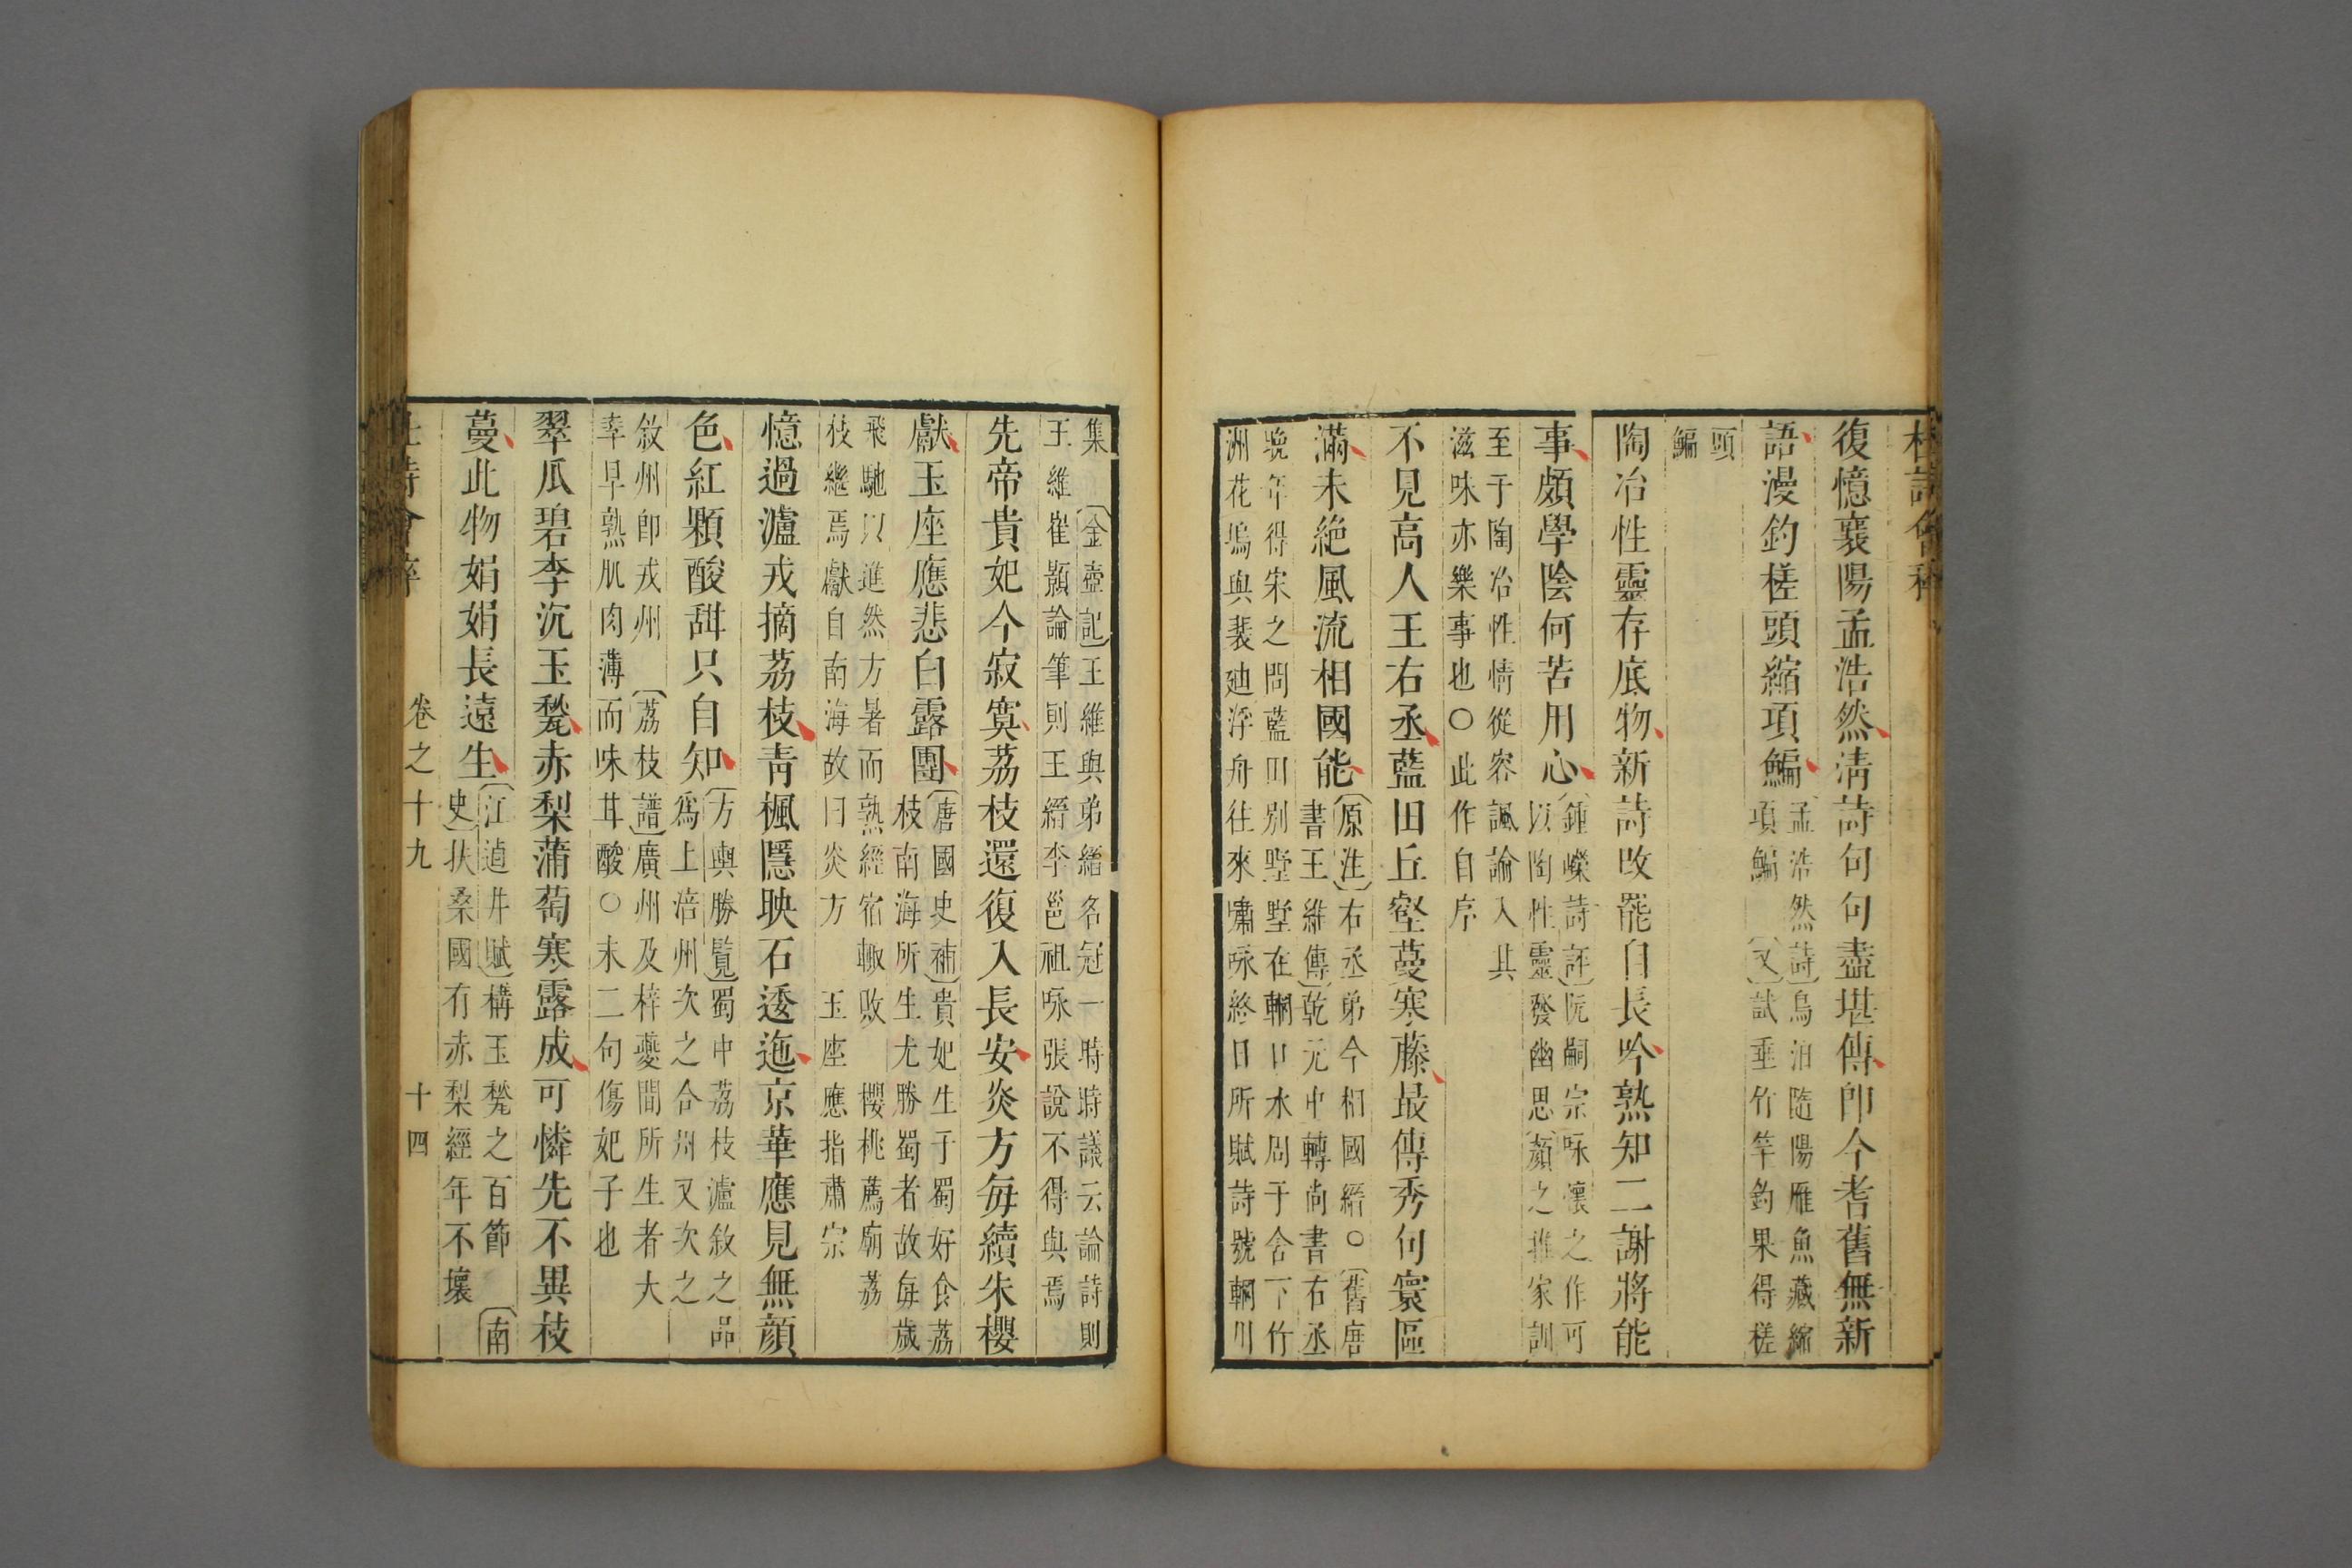 杜詩會稡
復憶襄陽孟浩然淸詩句句盡堪傳卽今耆舊無新
語漫釣槎頭縮項鯿
孟浩然〔詩〕鳥泊隨陽雁魚藏縮
項鯿〔又〕試垂竹竿釣果得槎
頭
鯿
陶冶性靈存底物新詩改罷自長吟熟知二謝將能
事頗學陰何苦用心
〔鍾嶸詩評〕阮嗣宗咏懷之作可
以陶性靈發幽思〔顏之推家訓
至于陶冶性情從容諷諭入其
滋味亦樂事也○此作自序
不見高人王右丞藍田丘壑蔓寒藤最傳秀句寰區
滿未絶風流相國能
〔原注〕右丞弟今相國縉○〔舊唐
書王維傳〕乾元中轉尚書右丞
晚年得宋之問藍田別墅墅在輞口水周于舍下竹
洲花塢與裴廸浮舟往來嘯咏終日所賦詩號輞川
集〔金壺記〕王維與弟縉名冠一時時議云論詩則
王維崔顥論筆則王縉李邕祖咏張說不得與焉
先帝貴妃今寂寞荔枝還復入長安炎方每續朱櫻
獻玉座應悲白露團
〔唐國史補〕貴妃生于蜀好食荔
枝南海所生尤勝蜀者故每歲
飛馳以進然方暑而熟經宿輙敗 櫻桃薦廟荔
枝繼焉獻自南海故曰炎方 玉座應指肅宗
憶過瀘戎摘荔枝靑楓隱映石逶迤京華應見無顏
色紅顆酸甜只自知
〔方輿勝覽〕蜀中荔枝瀘敘之品
爲上涪州次之合州又次之
敘州卽戎州 〔荔枝譜〕廣州及梓夔間所生者大
率早熟肌肉薄而味甘酸○末二句傷妃子也
翠瓜碧李沉玉甃赤梨蒲萄寒露成可憐先不異枝
蔓此物娟娟長遠生
〔江逌井賦〕構玉甃之百節 〔南
史〕扶桑國有赤梨經年不壞
杜詩會稡 卷之十九 十四